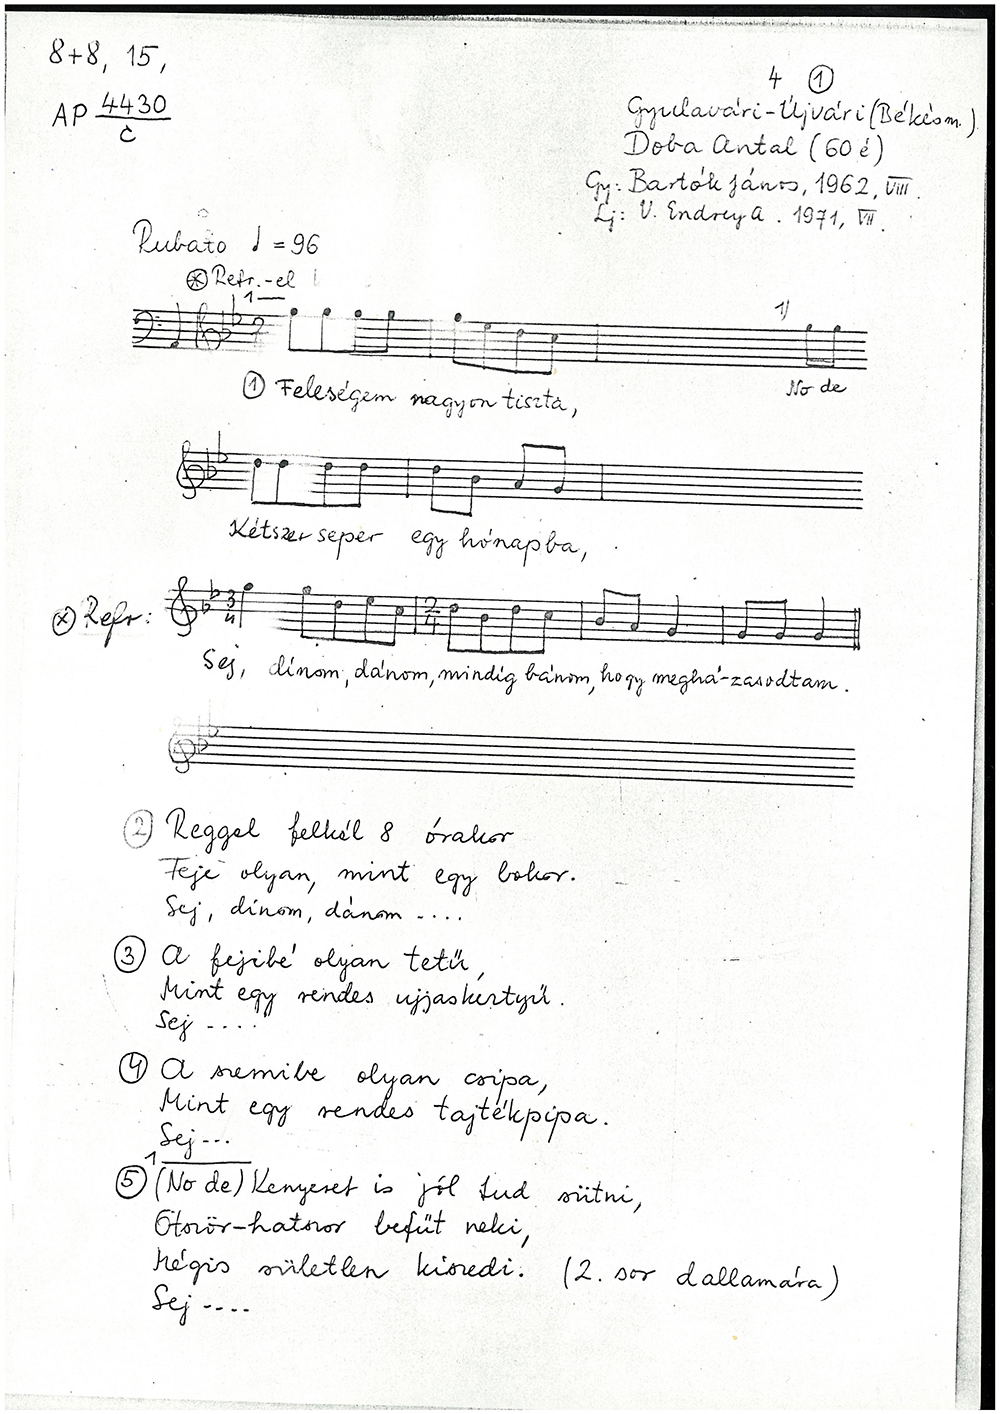 8+8, 15,
AP 4430/c
4 ①
Gyulavári-Újvári (Békésm.)
Doba Antal (60 é)
Gy: Bartók János, 1962, VIII.
Lj: V. Endrey A. 1971, VII.
Rubato ♩ = 96
ⓧ Refr.-el
1
1)
① Feleségem nagyon tiszta,
No de
Kétszer seper egy hónapba,
ⓧ Refr:
3/4 2/4
Sej, dínom, dánom, mindig bánom, hogy meghá-zasodtam.
② Reggel felkél 8 órakor
Feje olyan, mint egy bokor.
Sej, dínom, dánom ....
③ A fejibé olyan tetű,
Mint egy rendes ujjaskesztyű.
Sej ....
④ A szemibe olyan csipa,
Mint egy rendes tajtékpipa.
Sej ...
1
⑤ (No de) Kenyeret is jól tud sütni,
Ötször-hatszor befűt neki,
Mégis sületlen kiszedi. (2. sor dallamára)
Sej ....